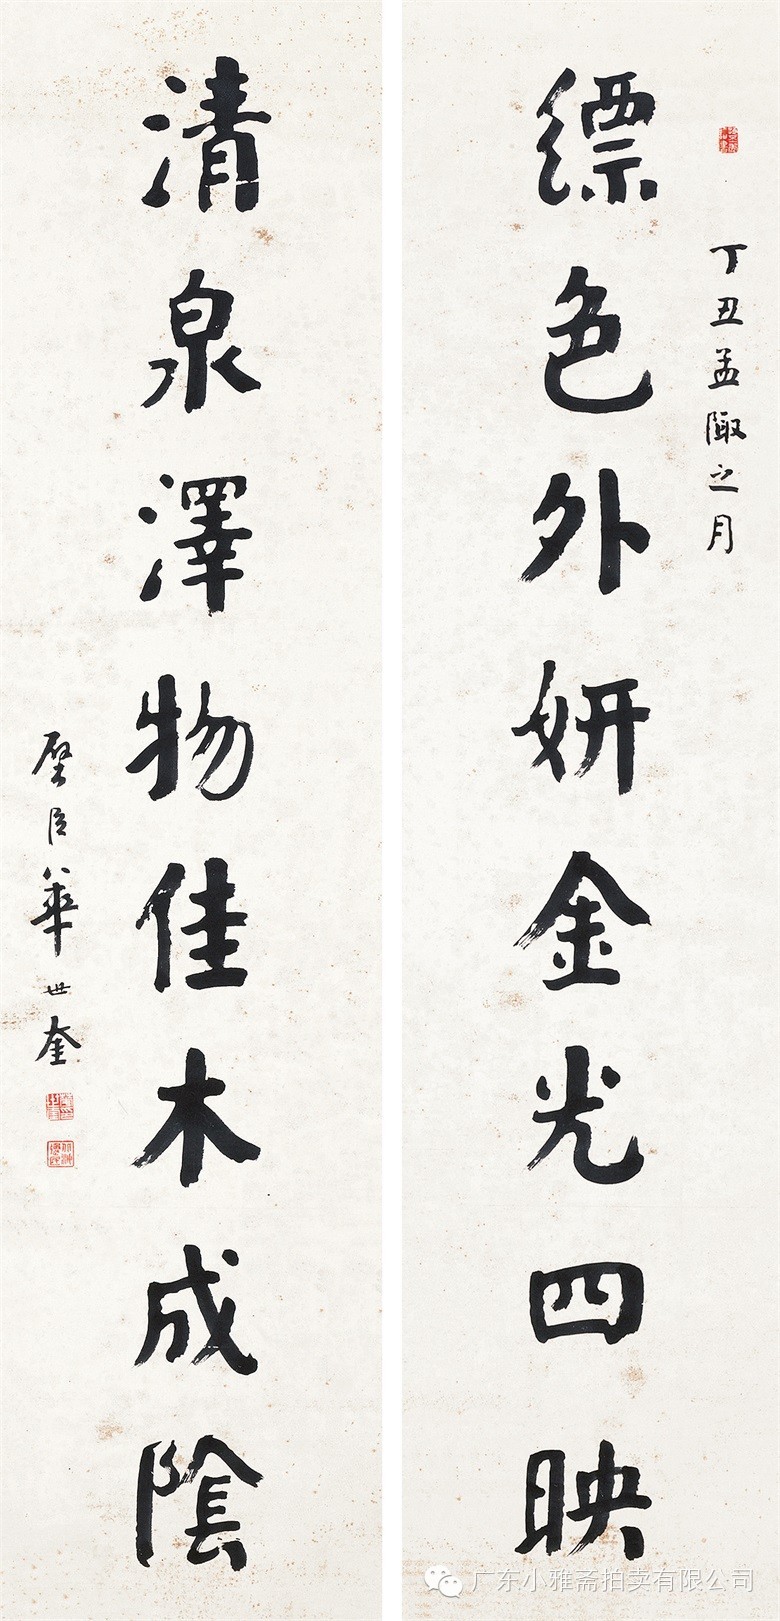 丁丑孟陬之月
缥色外妍金光四映
清泉澤物佳木成陰
璧臣華世奎
广东小雅斋拍卖有限公司